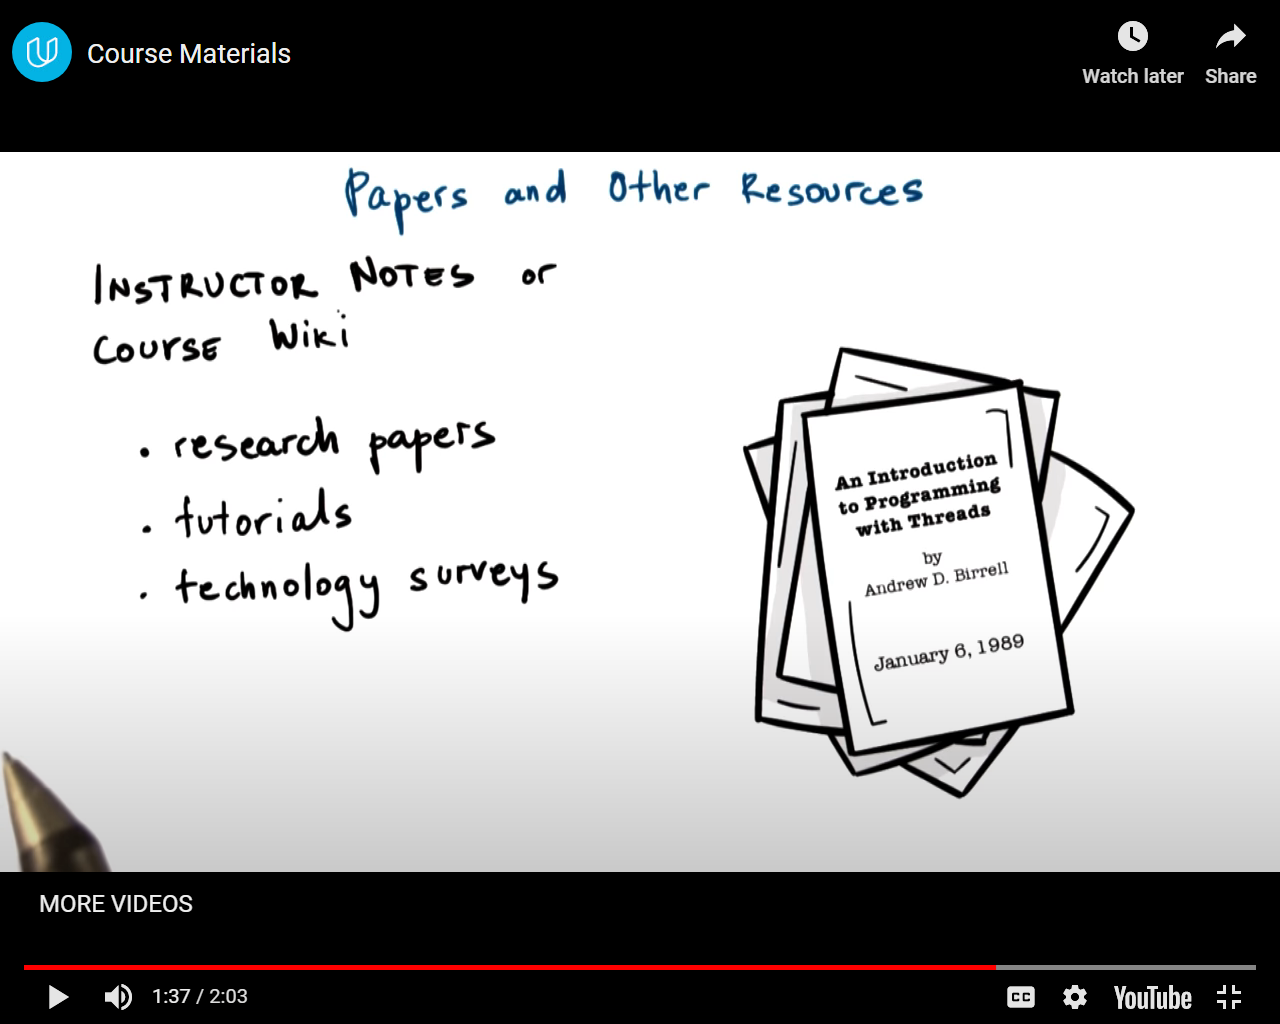 Course Materials
Watch later
Share
Papers and Other Resources
INSTRUCTOR NOTES or
COURSE Wiki
• research papers
• tutorials
• technology surveys
An Introduction
to Programming
with Threads
by
Andrew D. Birrell
January 6, 1989
MORE VIDEOS
1:37 / 2:03
CC
YouTube